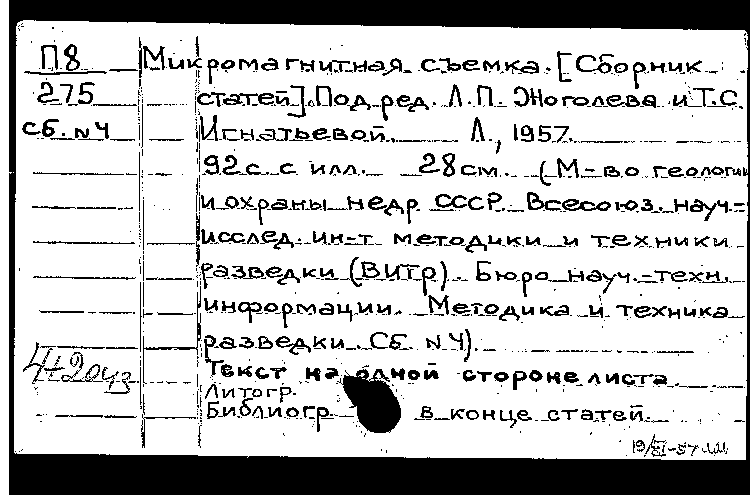 П8 Микромагнитная съемка. [Сборник
275 статей]. Под ред. Л.П. Жоголева и Т.С.
Сб. N4 Игнатьевой. Л., 1957.
92 с. с илл. 28 см. (М-во геологии
и охраны недр СССР. Всесоюз. науч.-
исслед. ин-т методики и техники
разведки (ВИТР). Бюро науч.-техн.
информации. Методика и техника
разведки. Сб. N4).
Текст на одной стороне листа.
Литогр.
Библиогр. в конце статей.